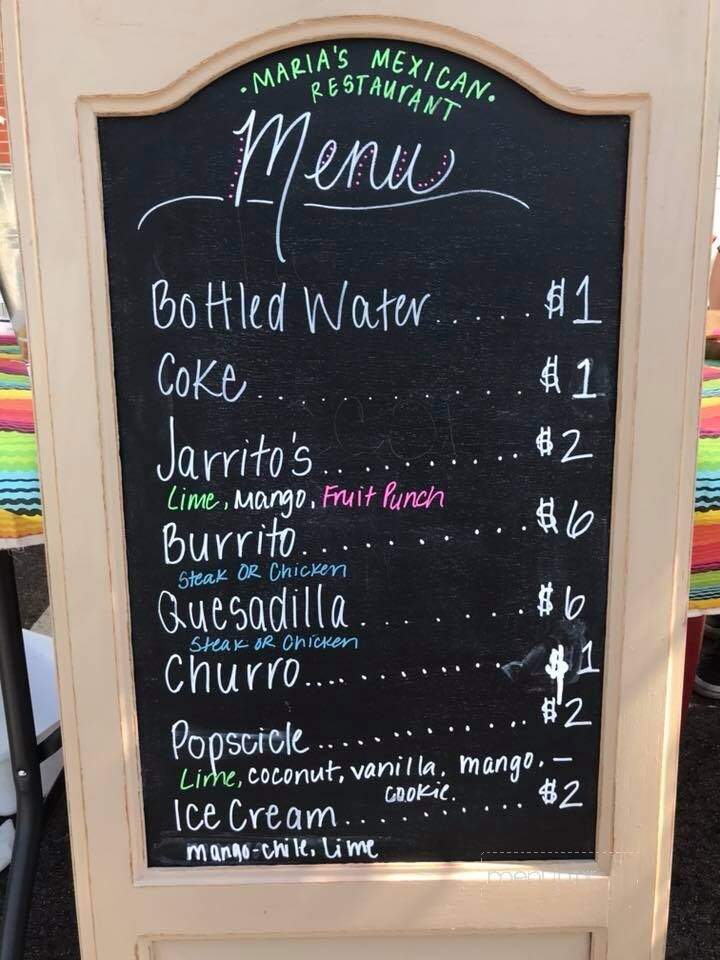 ·MARIA'S MEXICAN·
RESTAURANT
Menu
Bottled Water ..... $1
Coke ............ $1
Jarrito's ............ $2
Lime, Mango, Fruit Punch
Burrito ............ $6
Steak OR Chicken
Quesadilla ......... $6
Steak OR Chicken
Churro ............. $1
Popscicle ............ $2
Lime, coconut, vanilla, mango, –
cookie.
Ice Cream ............ $2
mango-chile, Lime